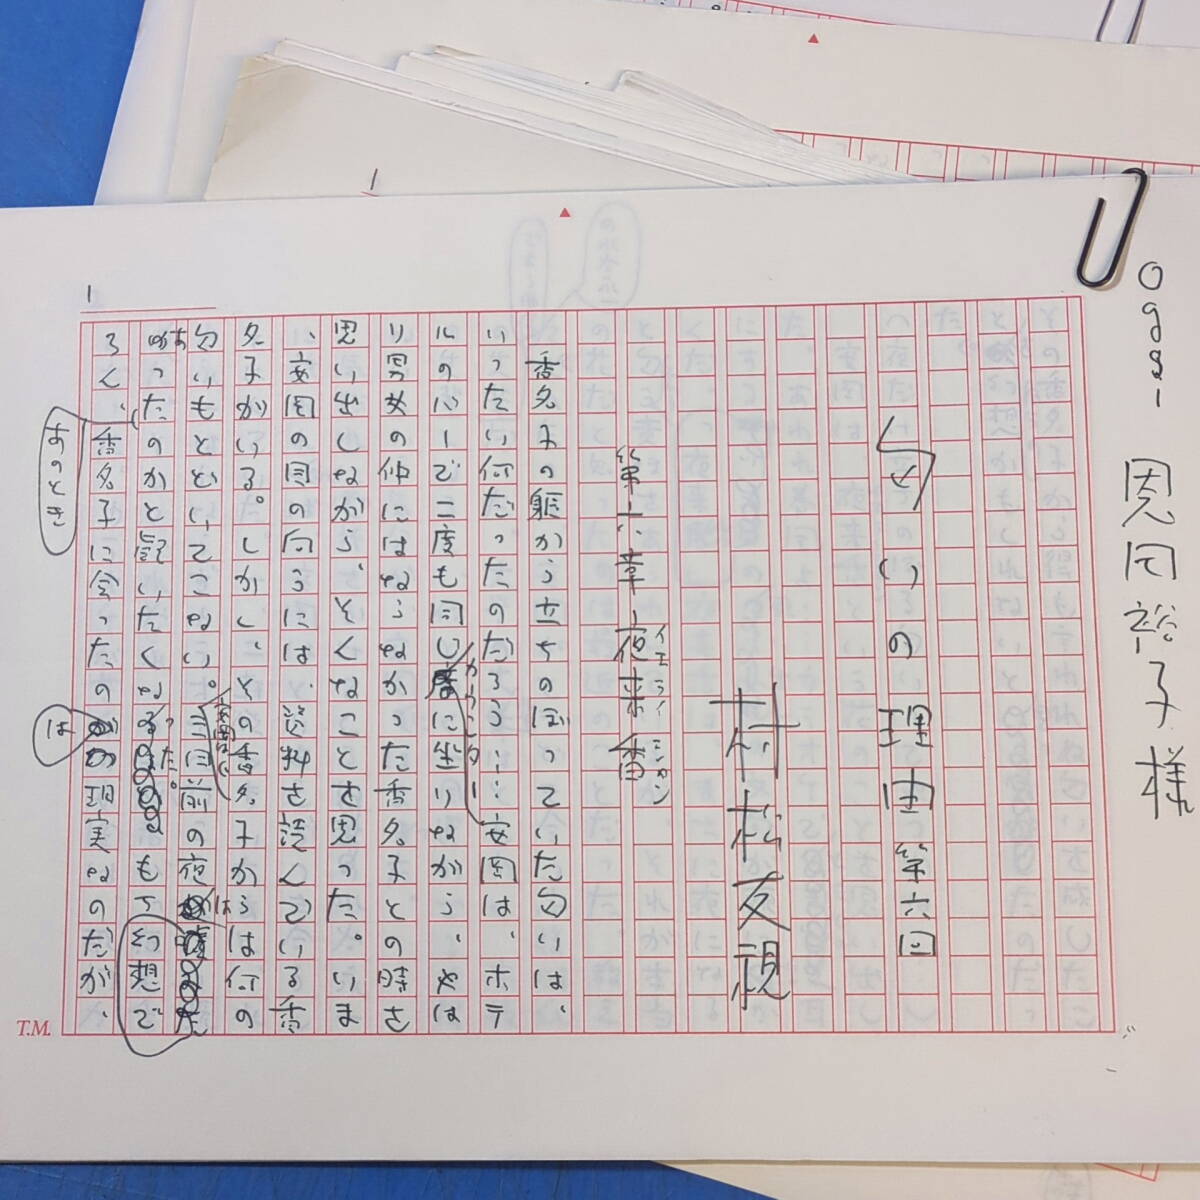 oggi 恩田裕子様
匂いの理由 第六回
村松友視
第六章 夜来香
イエライシャン
香名子の躯から立ちのぼっていた匂いは、
いったい何だったのだろう……安岡は、ホテ
ルのバーで二度も同じ
カウンター
に坐りながら、やは
り男女の仲にはならなかった香名子との時を
思い出しながら、そんなことを思った。いま
、安岡の目の向うには、資料を読んでいる香
名子がいる。しかし、その香名子からは何の
匂いもとどいてこない。
安岡は、
三日前の夜
は
もしかしたら幻想で
あ
ったのかと疑いたくな
った。
ろん、
あのとき
香名子に会ったの
は
現実なのだが、
1
T.M.